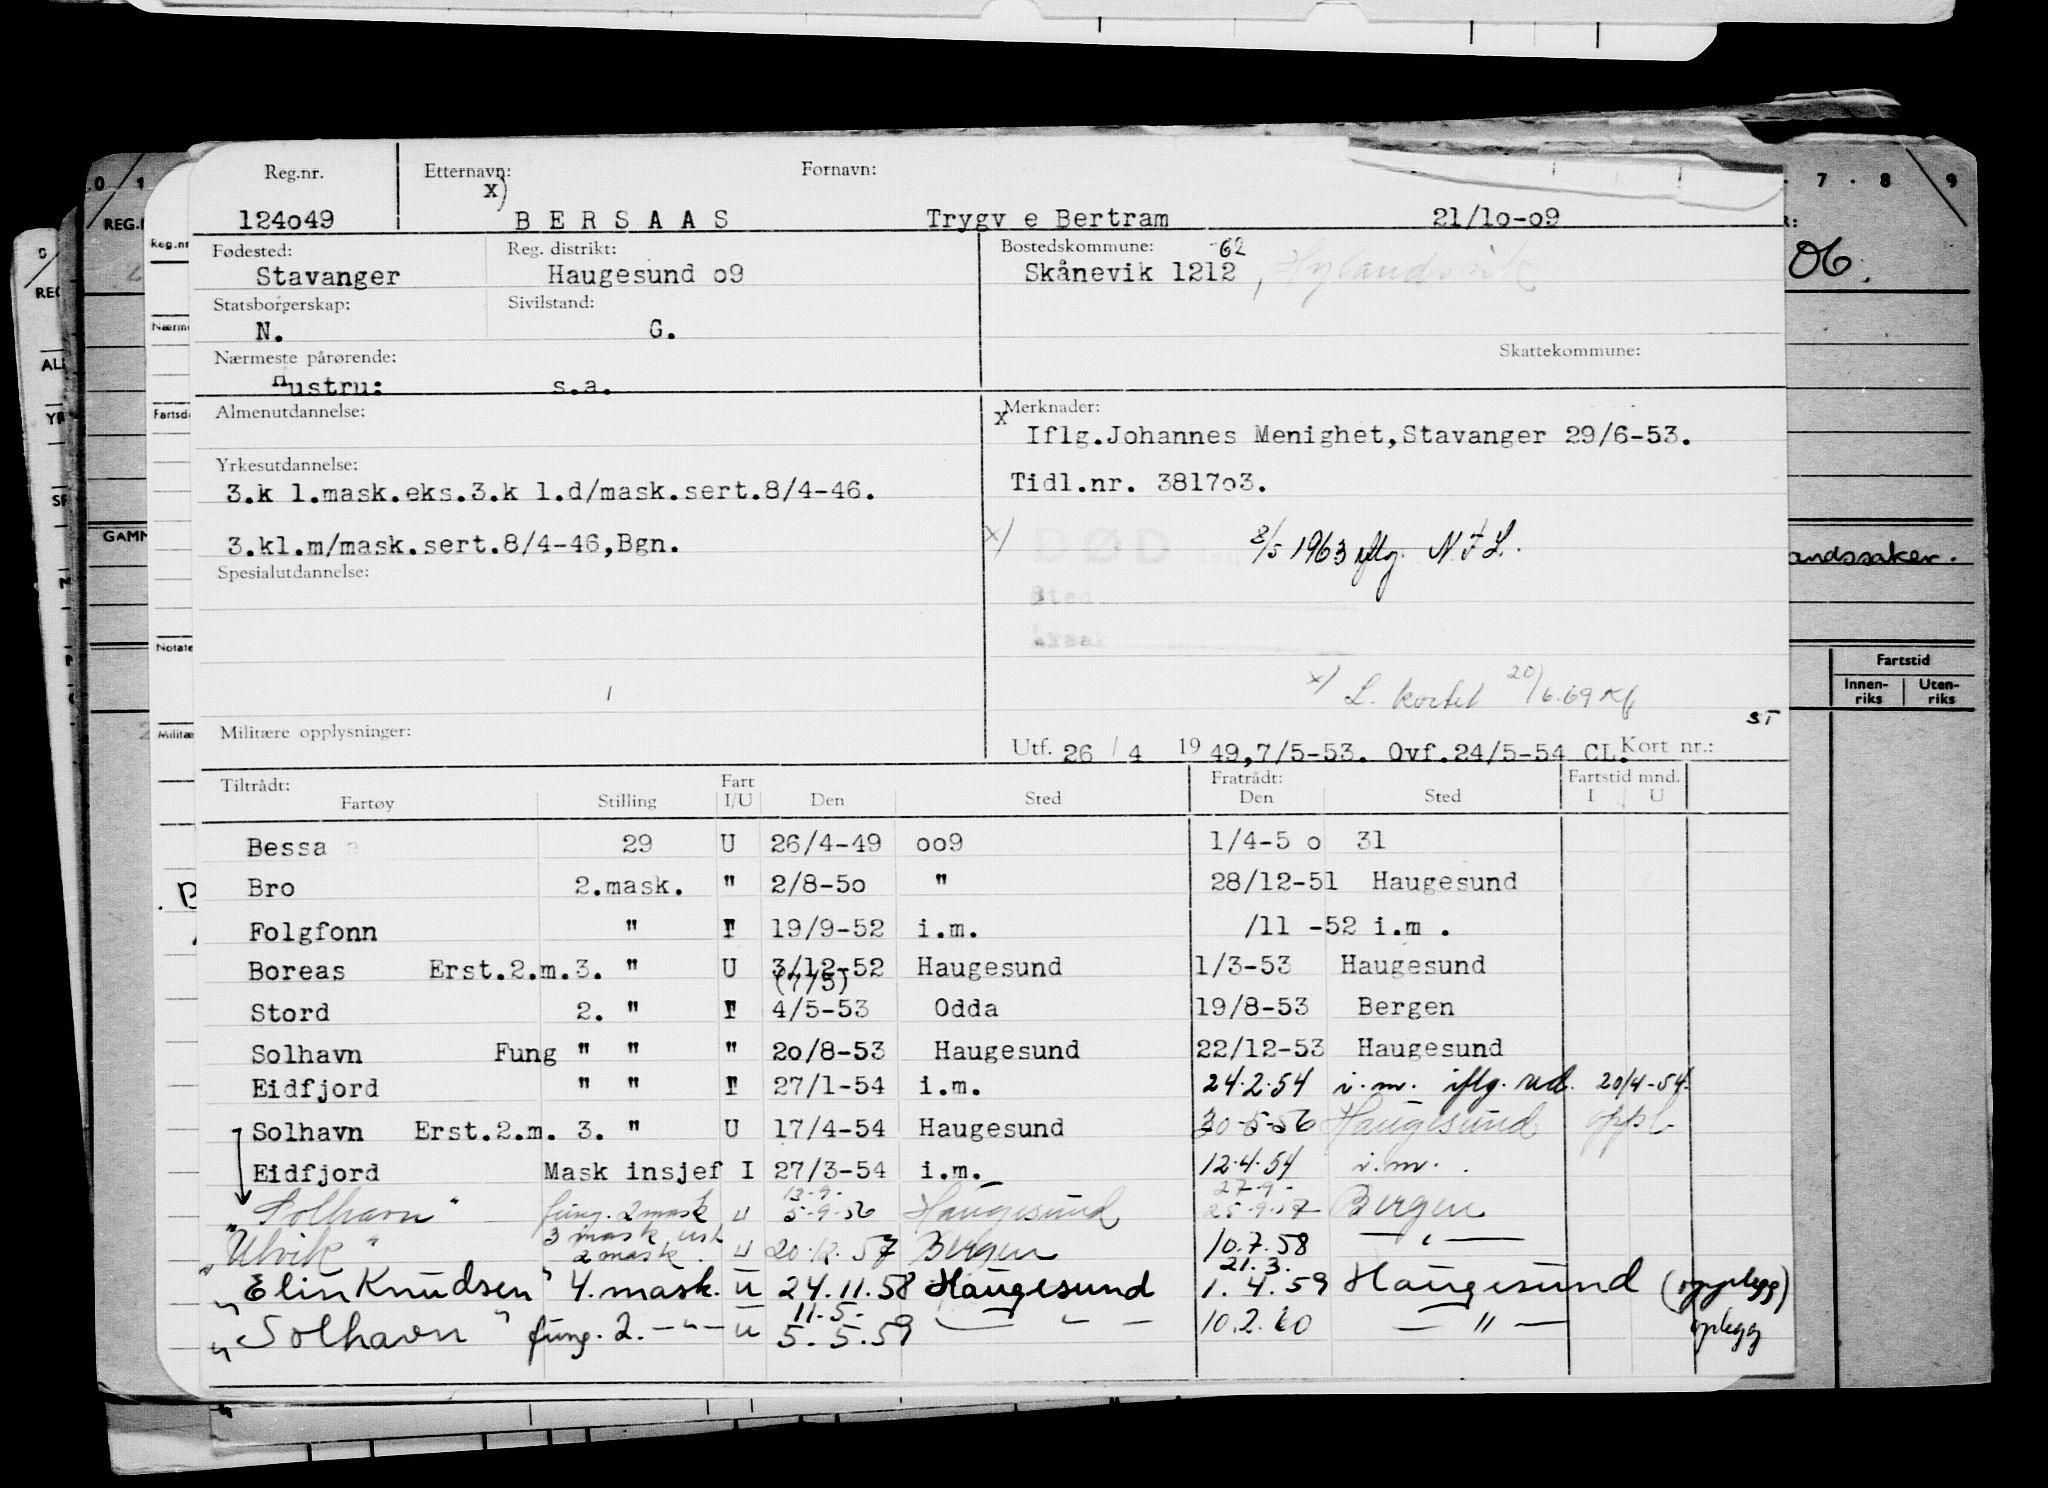 Reg.nr. Etternavn: Fornavn:
x)
124o49 B E R S A A S Trygv e Bertram 21/1o-o9
Fødested: Reg. distrikt: Bostedskommune: -62
Stavanger Haugesund o9 Skånevik 1212, Hylandsvik
Statsborgerskap: Sivilstand:
N. G.
Nærmeste pårørende: Skattekommune:
Hustru: s.a.
Almenutdannelse: Merknader:
x Iflg.Johannes Menighet,Stavanger 29/6-53.
Yrkesutdannelse:
3.k l.mask.eks.3.k l.d/mask.sert.8/4-46. Tidl.nr. 3817o3.
3.kl.m/mask.sert.8/4-46,Bgn. x) DØD den 8/5 1963 iflg. N.F.L.
Spesialutdannelse:
Sted
Årsak
x) L. kortet 20/6.69 Kf
ST
Militære opplysninger: Utf. 26 / 4 19 49,7/5-53. Ovf.24/5-54 CL. Kort nr.:
Tiltrådt: Fart Fratrådt: Fartstid mnd.
Fartøy Stilling I/U Den Sted Den Sted I U
Bessa a 29 U 26/4-49 oo9 1/4-5 o 31
Bro 2.mask. " 2/8-5o " 28/12-51 Haugesund
Folgfonn " I 19/9-52 i.m. /11 -52 i.m .
Boreas Erst.2.m.3. " U 3/12-52 Haugesund 1/3-53 Haugesund
(7/5)
Stord 2. " I 4/5-53 Odda 19/8-53 Bergen
Solhavn Fung " " " 2o/8-53 Haugesund 22/12-53 Haugesund
Eidfjord " " I 27/1-54 i.m. 24.2.54 i.m. iflg. rd. 20/4-54.
Solhavn Erst.2.m. 3. " U 17/4-54 Haugesund 30-5-56 Haugesund oppl
Eidfjord Mask insjef I 27/3-54 i.m. 12.4.54 i.m.
13-9- 27-9-
"Solhavn" fung. 2 mask u 5-9-56 Haugesund 25-9-57 Bergen
3 mask erst
"Ulvik" 2 mask. u 20.12.57 Bergen 10.7.58 — " —
21.3.
"Elin Knudsen" 4. mask. u 24.11.58 Haugesund 1.4.59 Haugesund (opplegg)
11.5.
"Solhavn" fung. 2. — " — u 5.5.59 — " — 10.2.60 — " — oplegg
0 1 7 . 8 9
REG.
06.
Reg.nr
Fartsda
GAMM
andssaker.
Notate
Fartstid
Innen-riks Uten-riks
Militæ